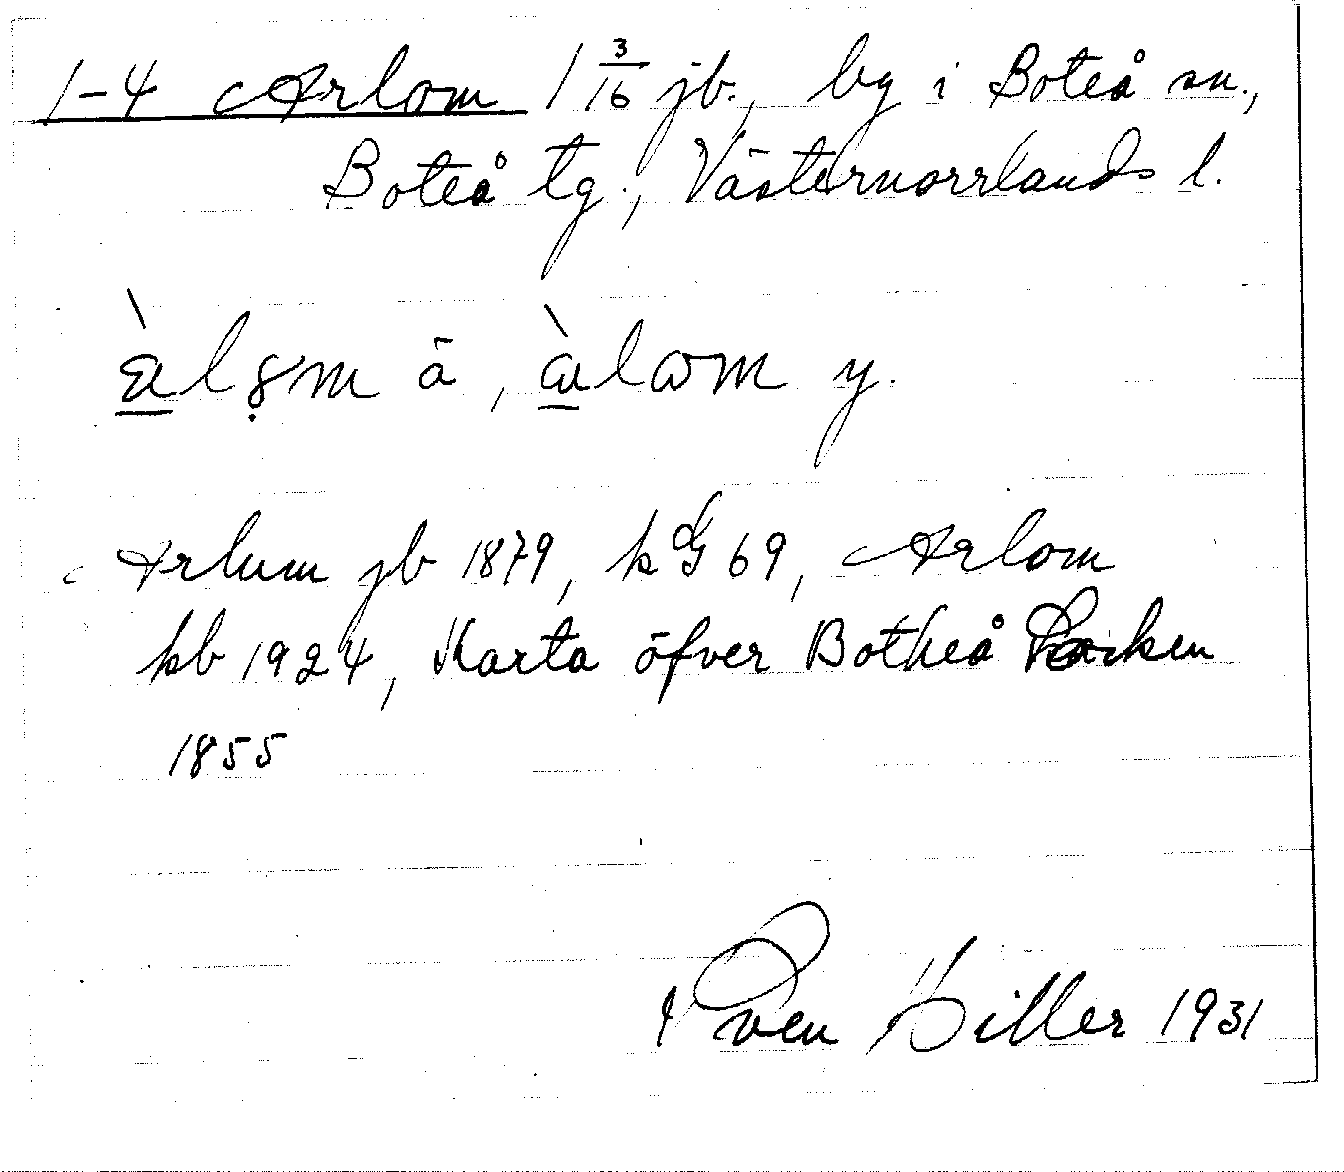 1-4 Arlom 1 3/16 jb., by i Boteå sn.,
Boteå tg., Västernorrlands l.
àlo̤m ä, àlωm y.
Arlum jb 1879, k G 69, Arlom
kb 1924, Karta öfver Botheå Socken
1855
Sven Hiller 1931